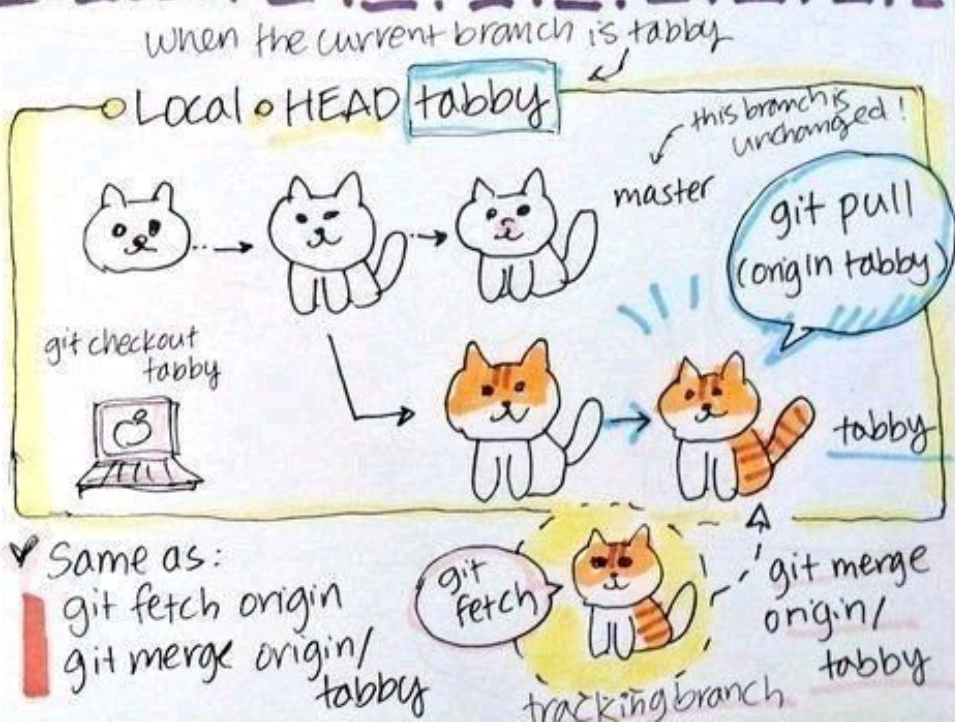 when the current branch is tabby
Local • HEAD tabby
this branch is
unchanged!
master
git pull
(origin tabby)
git checkout
tabby
tabby
Same as:
git fetch origin
git merge origin/
tabby
git
fetch
git merge
origin/
tabby
tracking branch